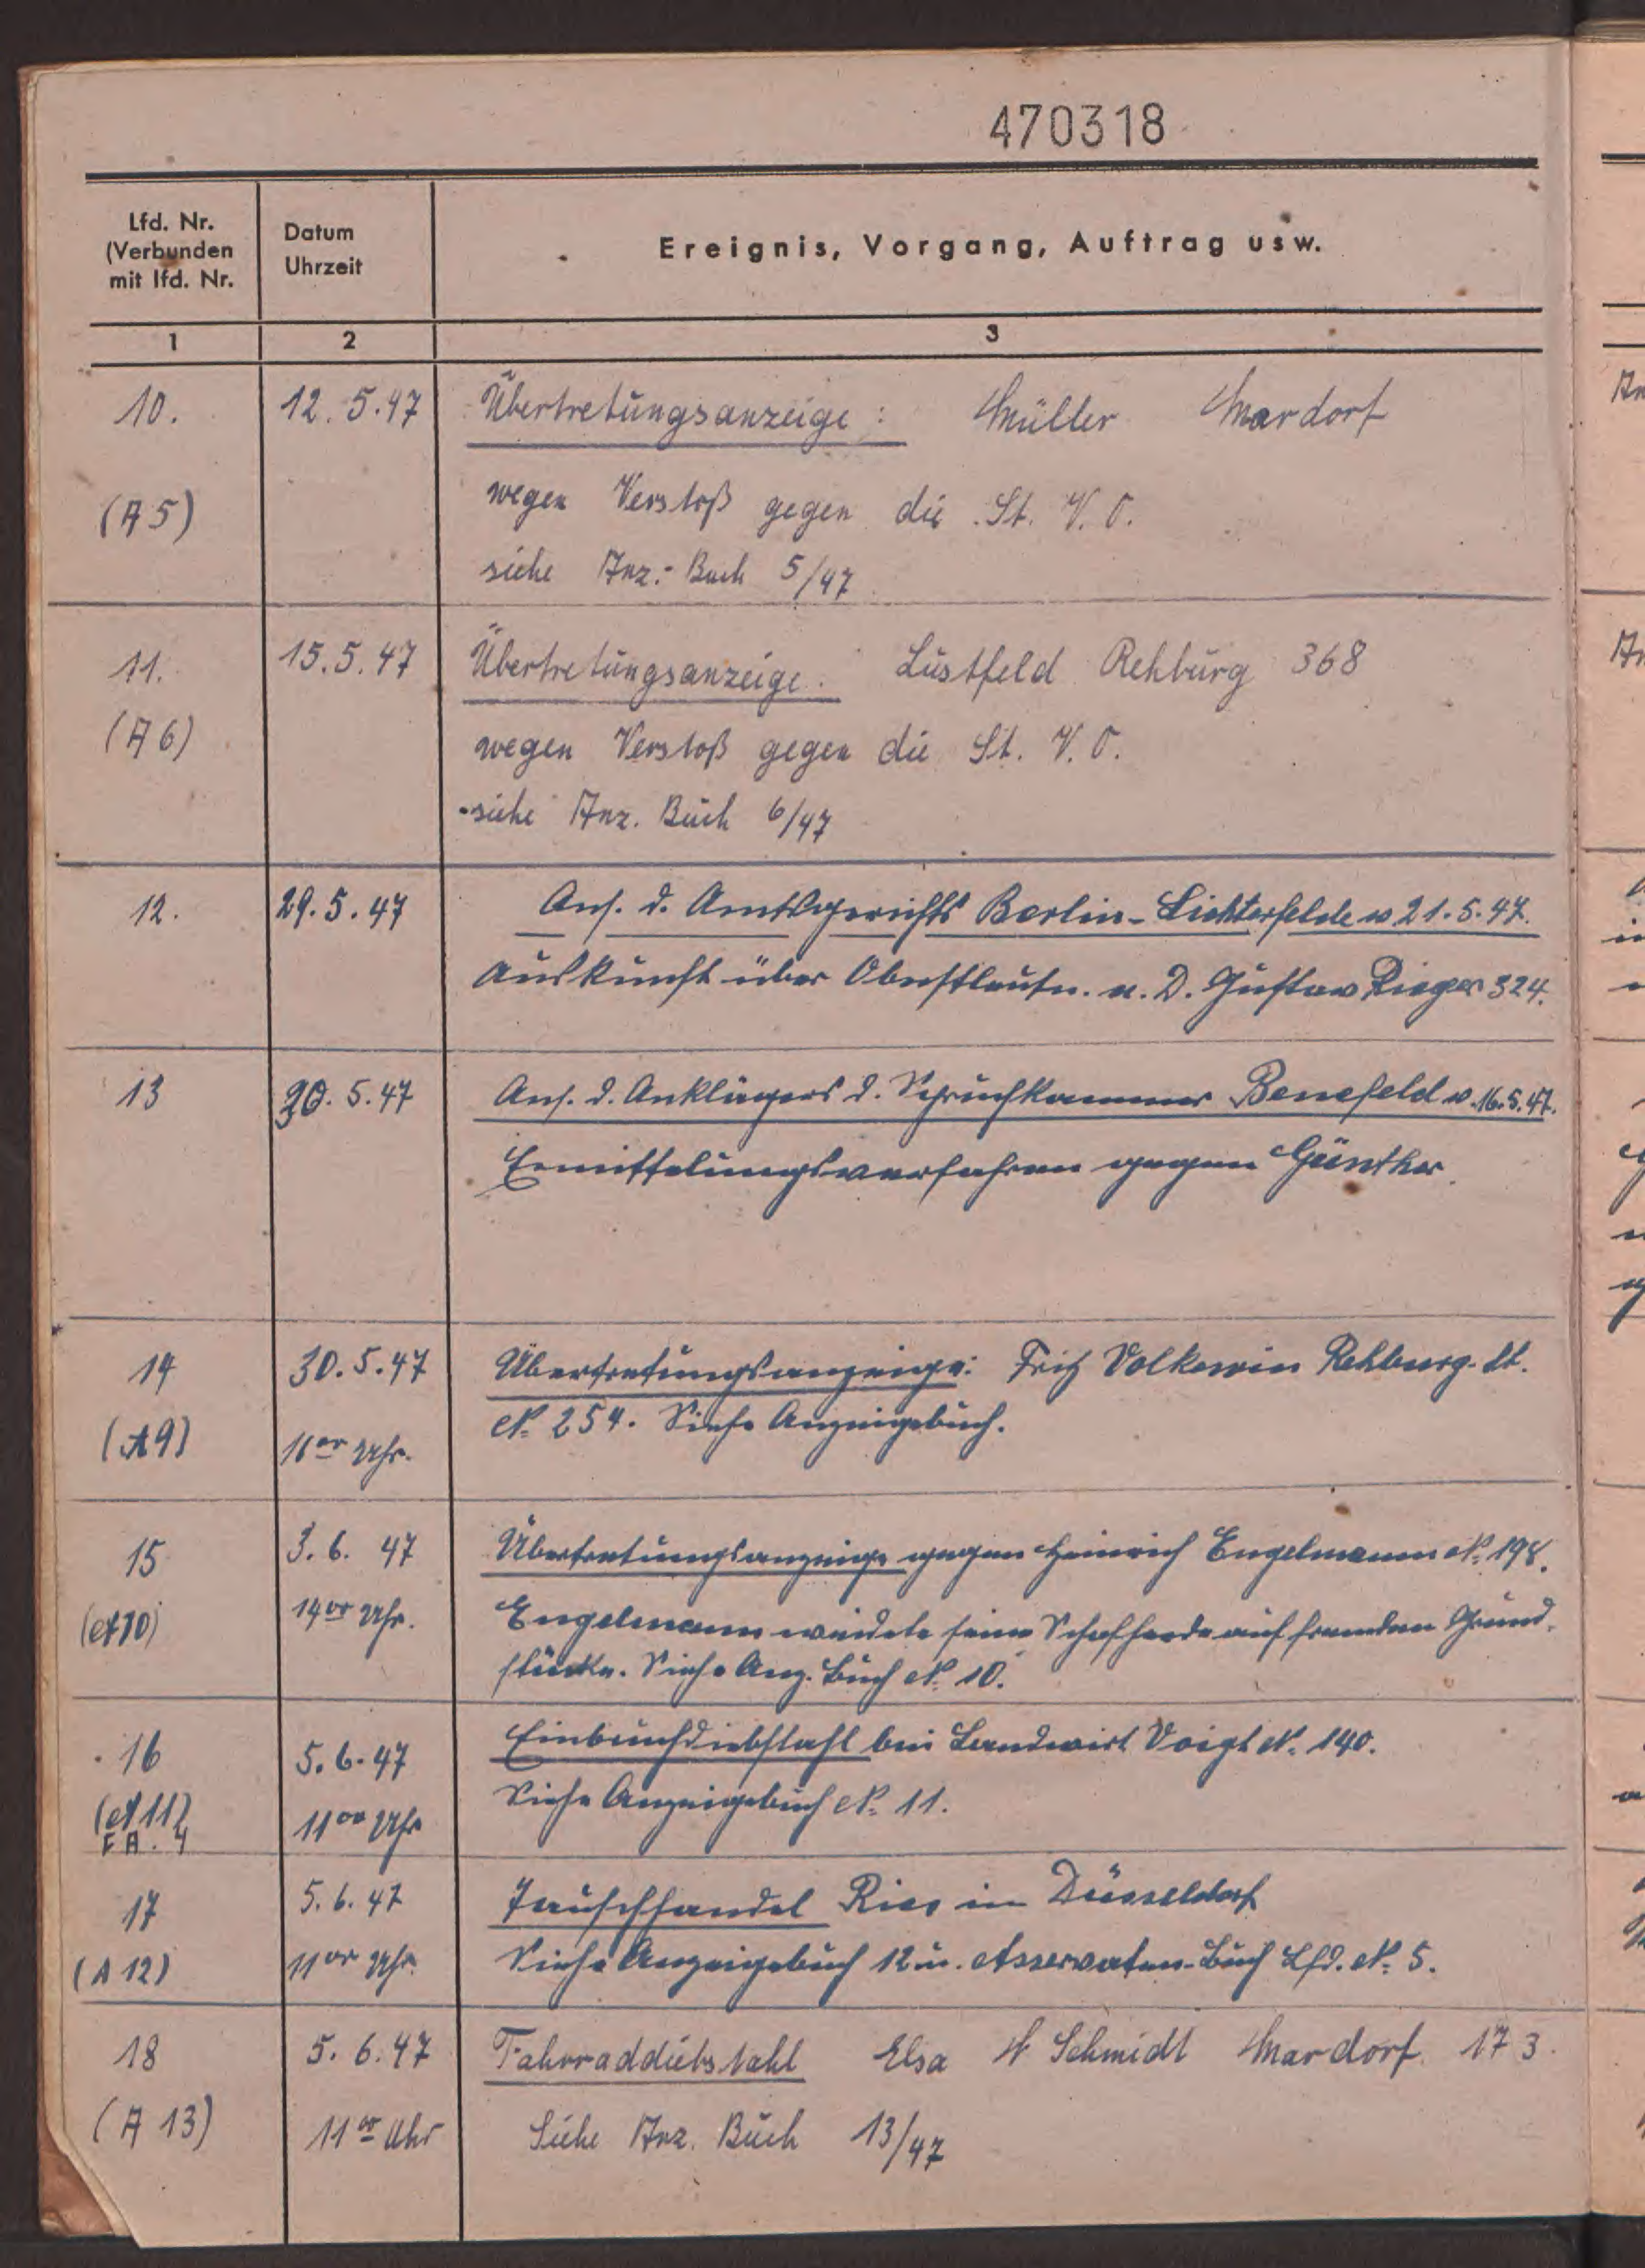 470318
Lfd. Nr.
(Verbunden
mit lfd. Nr.
Datum
Uhrzeit
Ereignis, Vorgang, Auftrag usw.
1 2 3
10. 12.5.47 Übertretungsanzeige: Müller Mardorf
(A 5) wegen Verstoß gegen die St. V. O.
siehe Anz.-Buch 5/47
11. 15.5.47 Übertretungsanzeige. Lustfeld Rehburg 368
(A 6) wegen Verstoß gegen die St. V. O.
siehe Anz. Buch 6/47
12. 29.5.47 Anf. d. Amtsgerichts Berlin-Lichterfelde v 21.5.47.
Auskunft über Oberstleutn. a. D. Gustav Rieger 324.
13 30.5.47 Anf. d. Anklägers d. Spruchkammer Benefeld v. 16.5.47.
Ermittelungsverfahren gegen Günther.
14 30.5.47 Übertretungsanzeige: Fritz Volkewin Rehburg-St.
(A9) 11 00 Uhr. N. 254. Siehe Anzeigebuch.
15 3.6. 47 Übertretungsanzeige gegen Heinrich Engelmann N. 198.
(A10) 14 00 Uhr. Engelmann weidete seine Schafherde auf fremden Grund-
stücke. Siehe Anz. Buch N. 10.
16 5.6.47 Einbruchdiebstahl bei Landwirt Voigt N. 140.
(A 11) 11 00 Uhr Siehe Anzeigebuch N. 11.
F A. 4
17 5.6.47 Tauschhandel Ries in Düsseldorf
(A 12) 11 00 Uhr. Siehe Anzeigebuch 12 u. Asservaten-Buch Lfd. N. 5.
18 5.6.47 Fahrraddiebstahl Elsa Schmidt Mardorf 173.
(A 13) 11 00 Uhr Siehe Anz. Buch 13/47